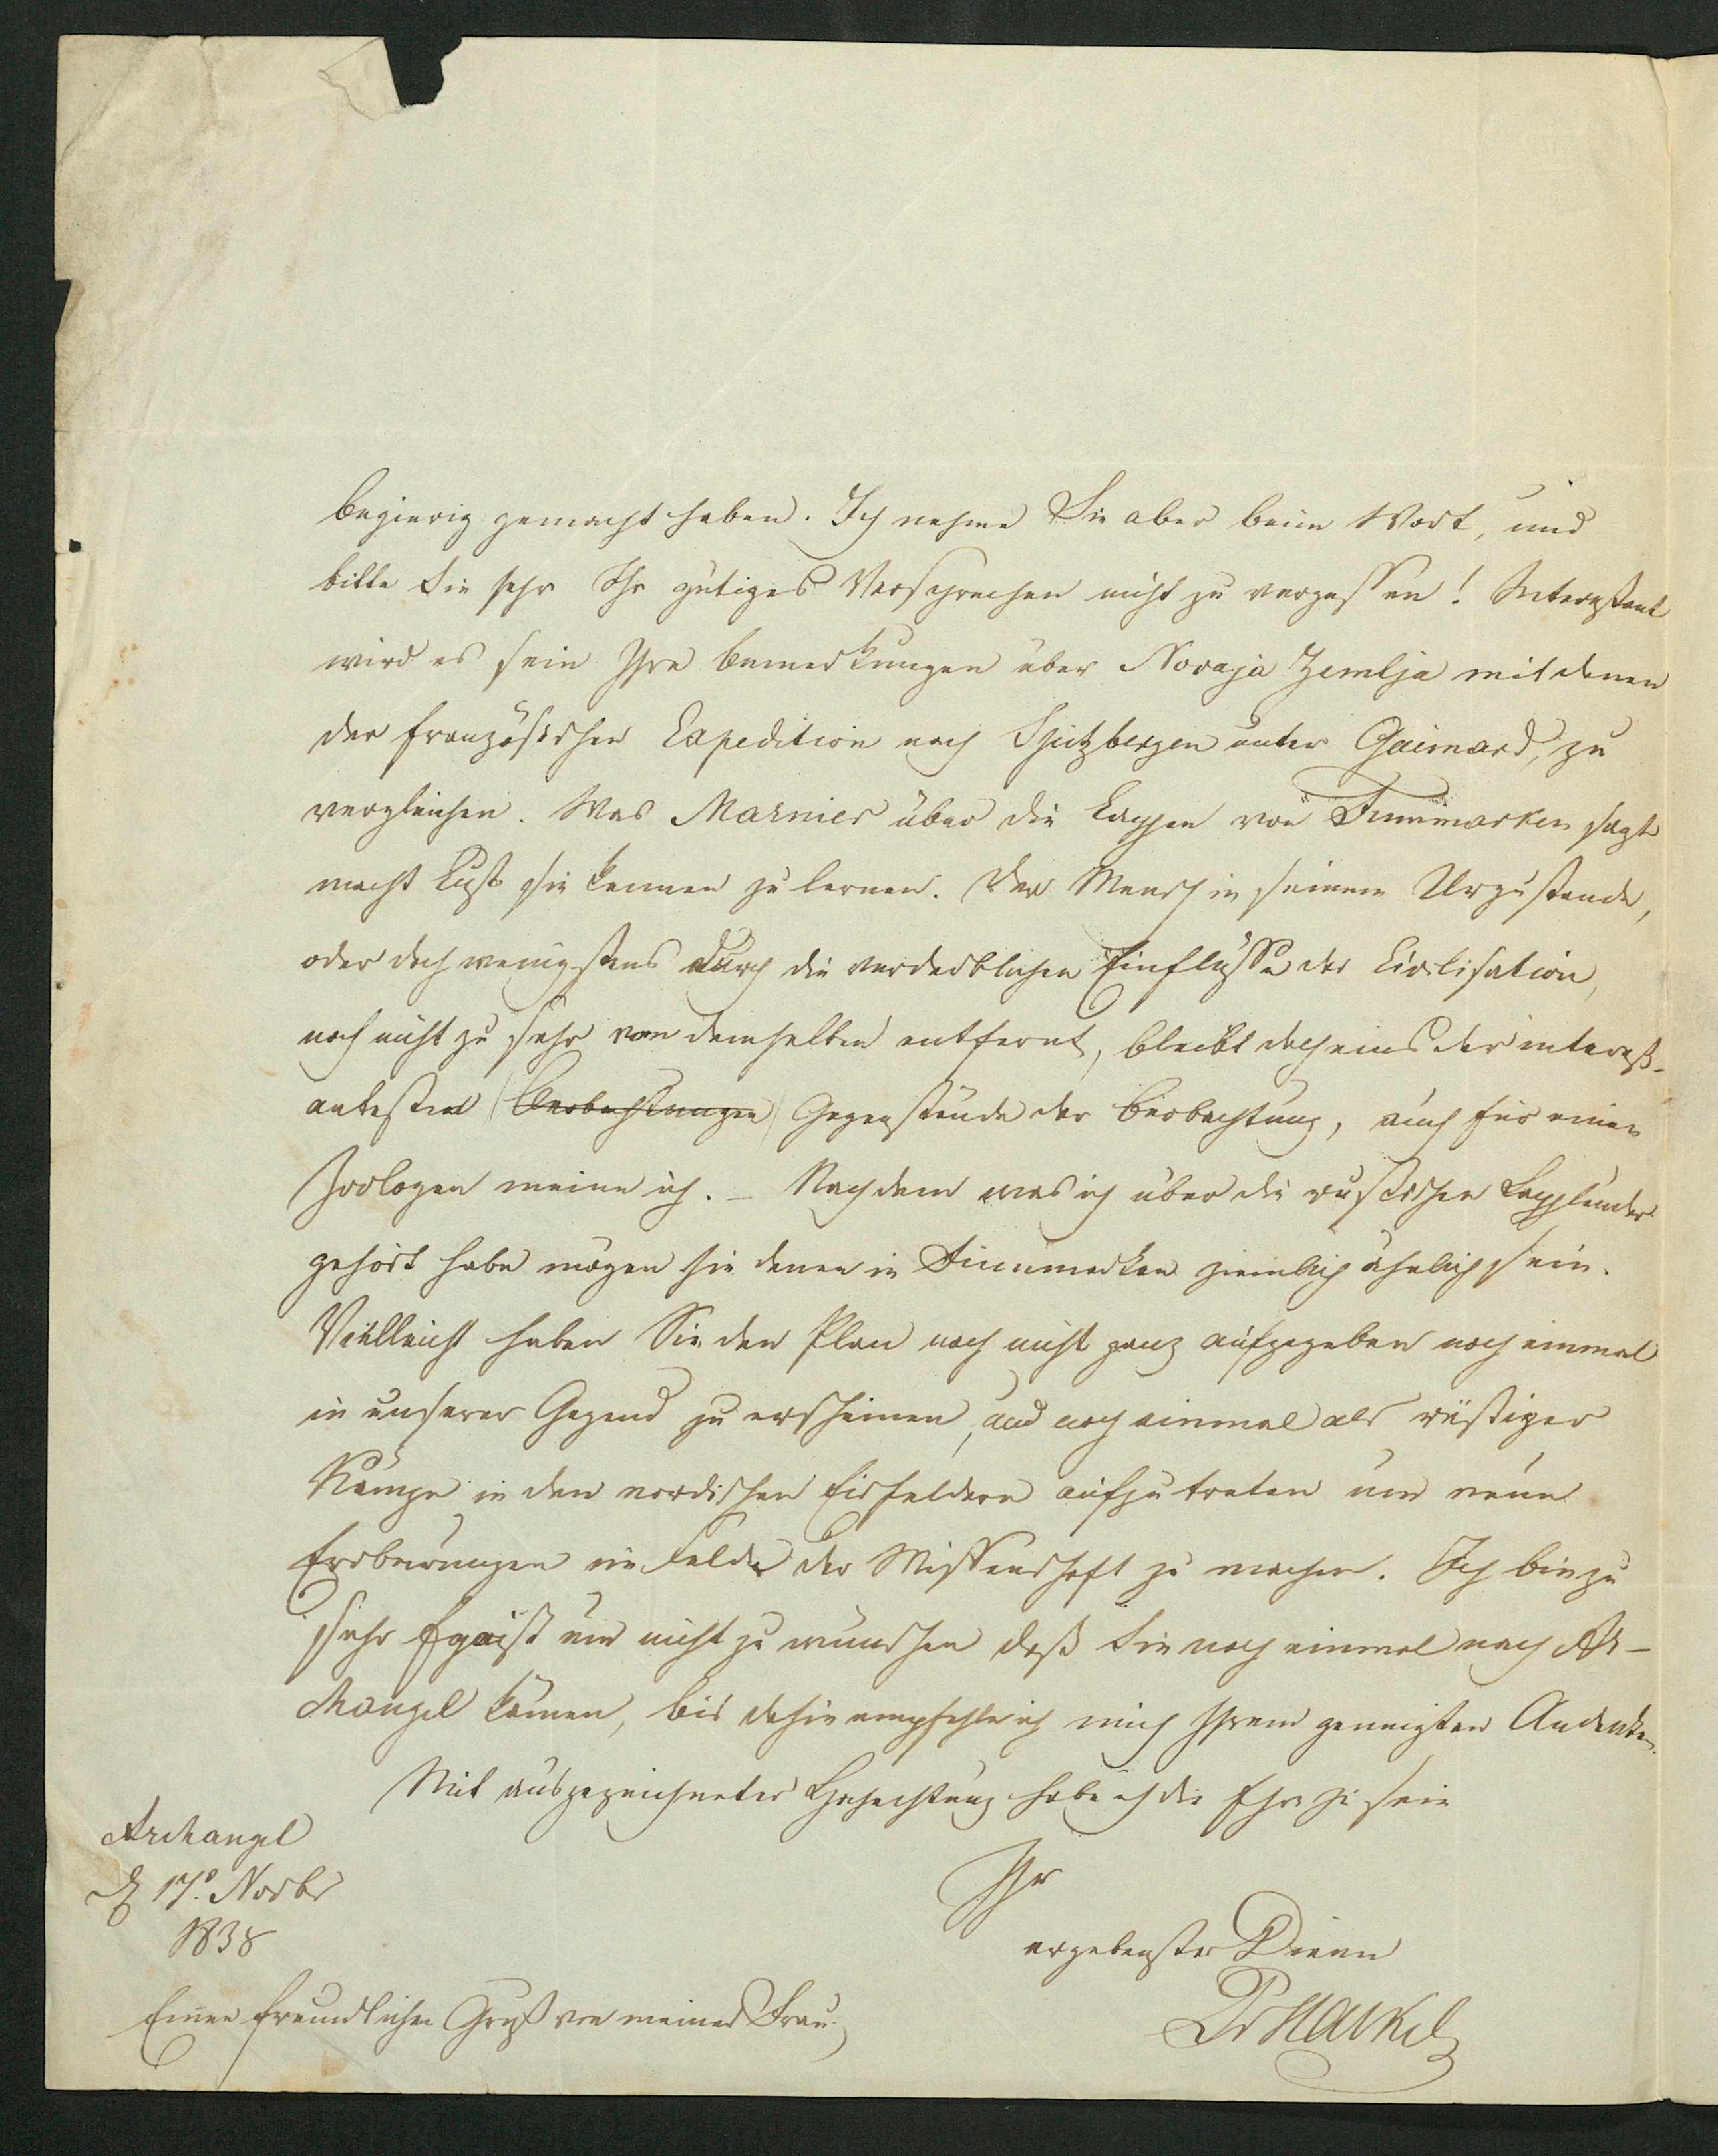 begierig gemacht haben. Ich nehme Sie aber beim Wort, und
bitte Sie sehr Ihr gütiges Versprechen nicht zu vergessen! Interessant
wird es sein Ihre Bemerkungen über Novaja Zemlja mit denen
der französischen Expedition nach Spitzbergen unter Gaimard, zu
vergleichen. Was Marmier über die Lappen von Finnmarken sagt
macht Lust sie kennen zu lernen. Der Mensch in seinem Urzustande,
oder doch wenigstens durch die verderblichen Einflüsse der Civilisation,
noch nicht zu sehr von demselben entfernt, bleibt doch eins der interess-
antesten Beobachtungen Gegenstände der Beobachtung, auch für einen
Zoologen meine ich. – Nach dem was ich über die russischen Lappländer
gehört habe mögen sie denen in Finnmarken ziemlich ähnlich sein.
Vielleicht haben Sie den Plan noch nicht ganz aufgegeben noch einmal
in unserer Gegend zu erscheinen, und noch einmal als rüstiger
Kämpe in den nordischen Eisfeldern aufzutreten um neue
Eroberungen im Felde der Wissenschaft zu machen. Ich bin zu
sehr Egoist um nicht zu wünschen daß Sie noch einmal nach Ar-
changel kämen, bis dahin empfehle ich mich Ihrem geneigten Andenken.
Mit ausgezeichneter Hochachtung habe ich die Ehre zu sein
Archangel
d 17. Novbr
1838
Ihr
ergebenster Diener
Einen freundlichen Gruß von meiner Frau.